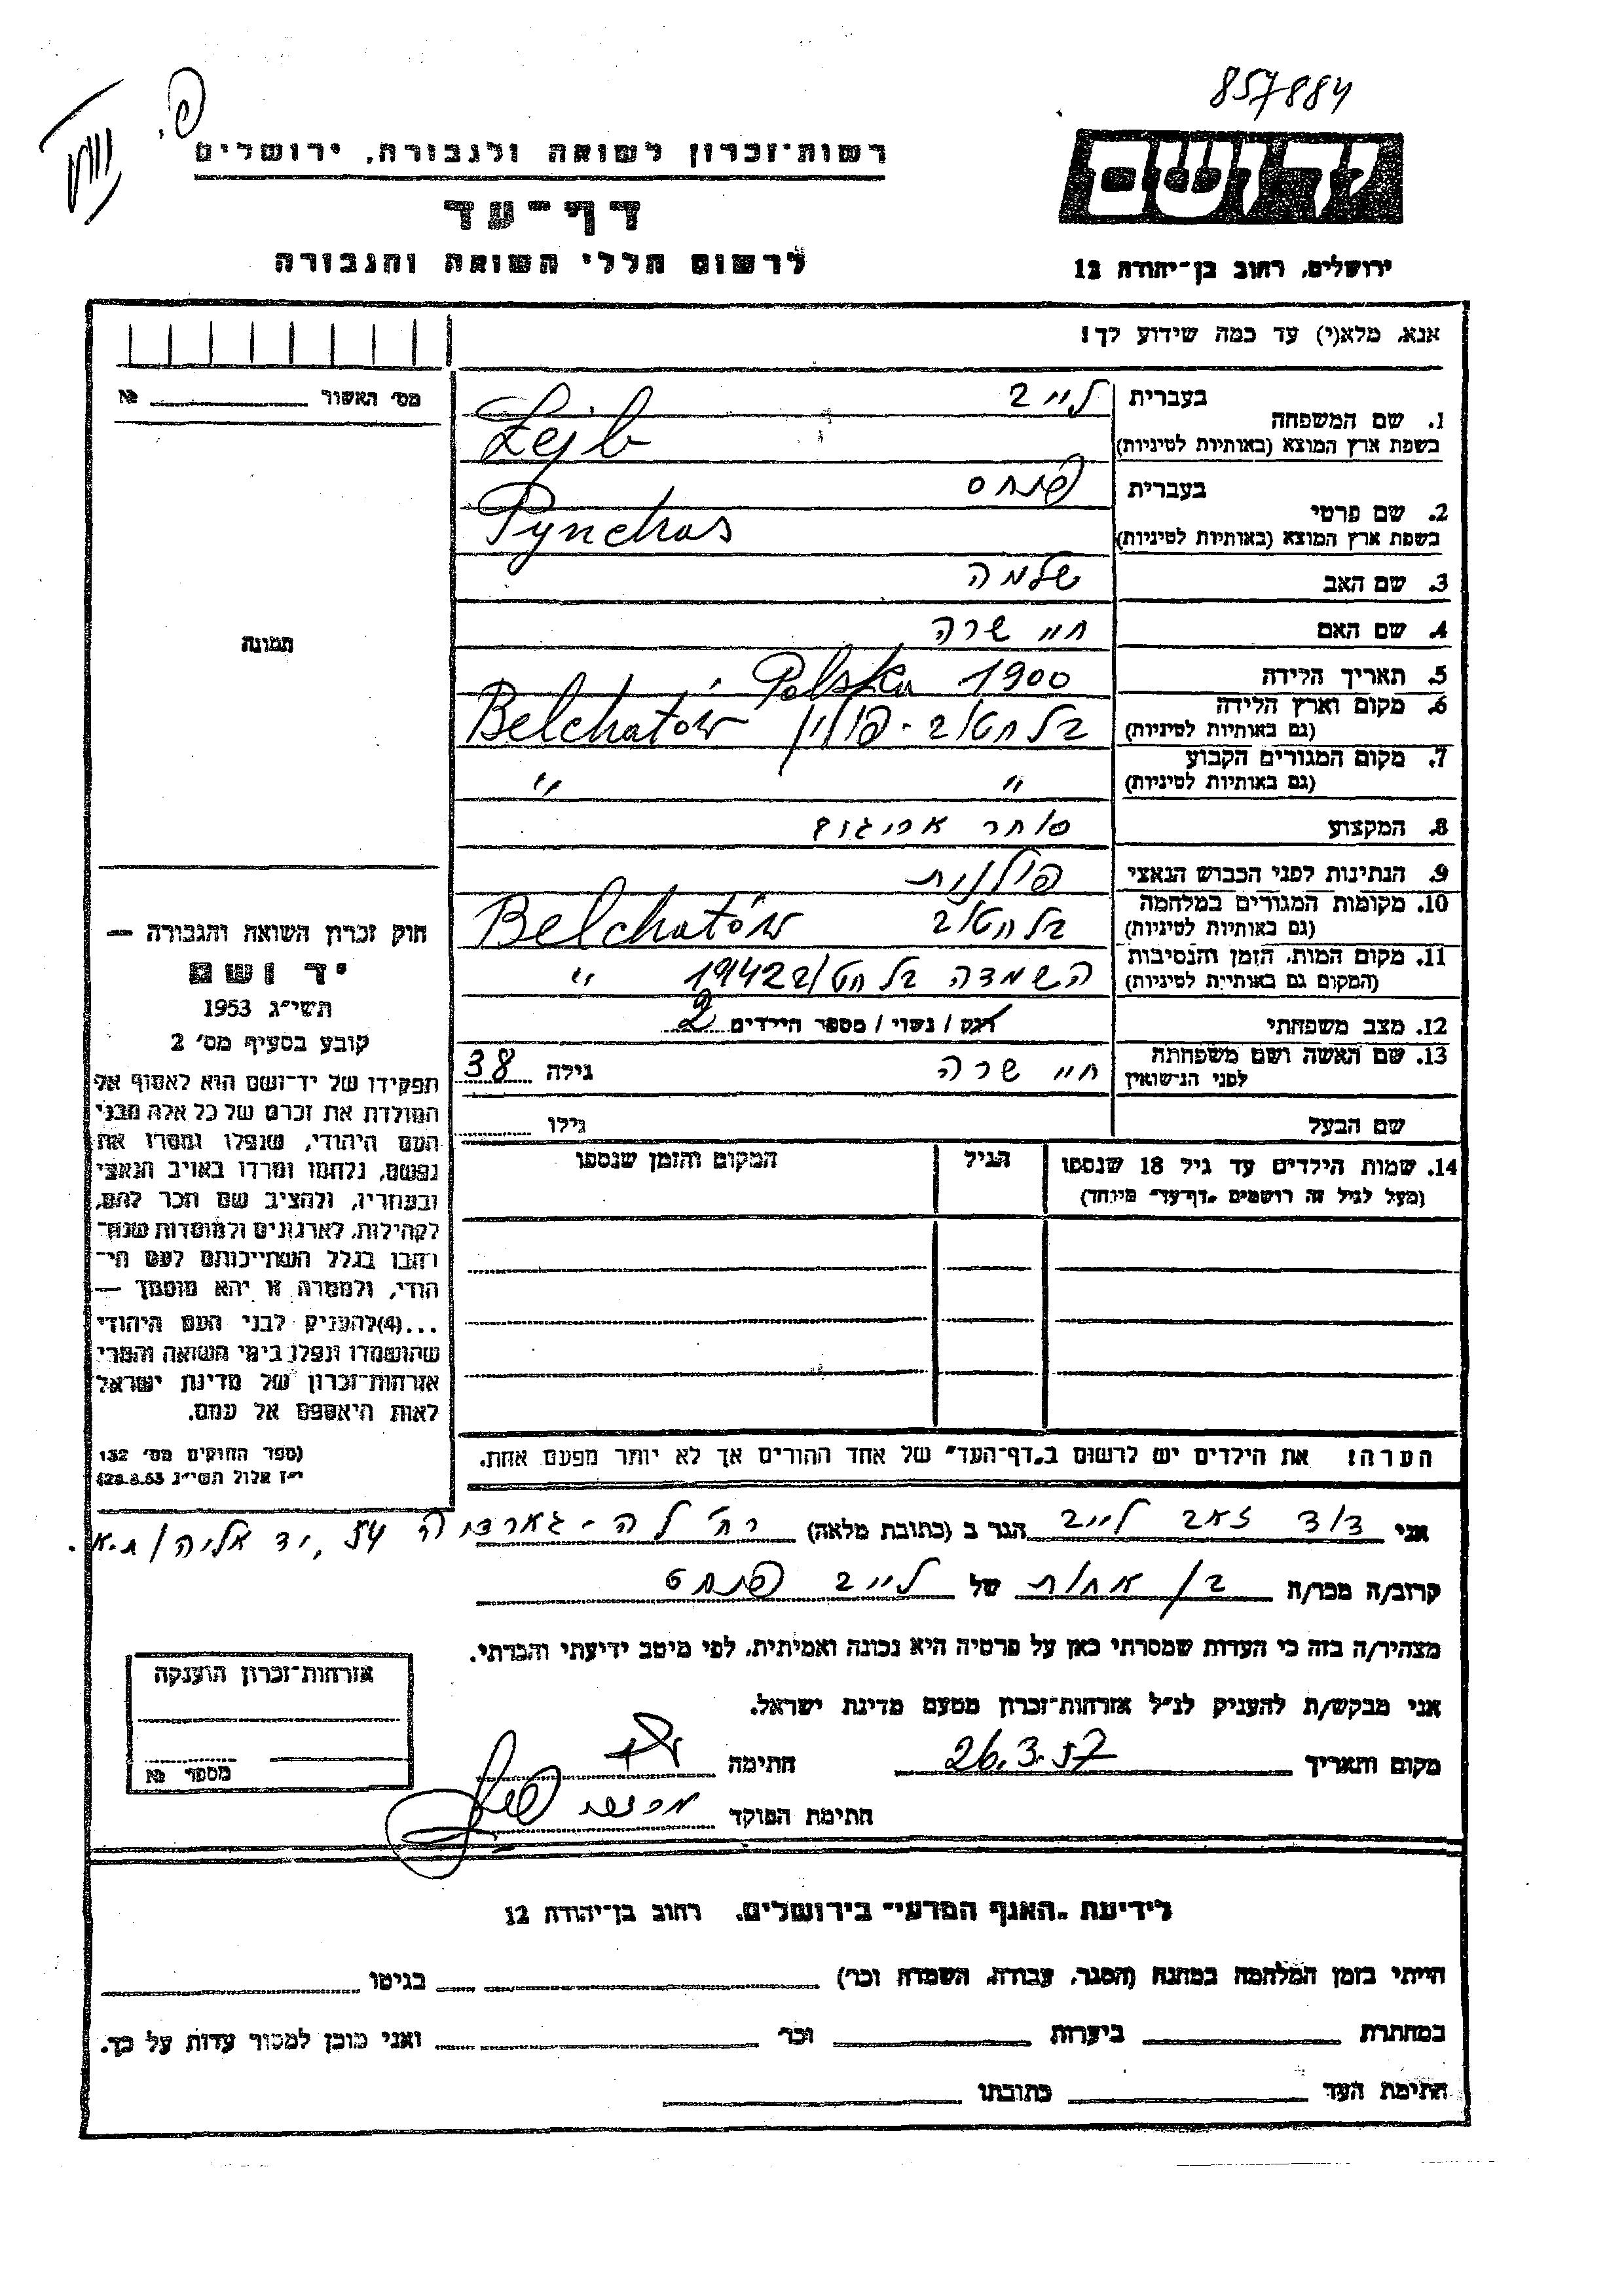 857884
רשות־זכרון לשואה ולגבורה, ירושלים
יד ושם
דף־עד
לרשום חללי השואה והגבורה
ירושלים, רחוב בן־יהודה 12
אנא, מלא(י) עד כמה שידוע לך!
מס׳ האשור № 
1. שם המשפחה
בעברית לייב
בשפת ארץ המוצא (באותיות לטיניות) Lejb
2. שם פרטי
בעברית פנחס
בשפת ארץ המוצא (באותיות לטיניות) Pynchas
3. שם האב שלמה
4. שם האם חיי שרה
תמונה
5. תאריך הלידה 1900
6. מקום וארץ הלידה Polska
(גם באותיות לטיניות) בלחטוב - פולין Belchatów
7. מקום המגורים הקבוע
(גם באותיות לטיניות) " "
8. המקצוע סוחר
9. הנתינות לפני הכבוש הנאצי פולנית
10. מקומות המגורים במלחמה
(גם באותיות לטיניות) בלחטוב Belchatów
11. מקום המות, הזמן והנסיבות
(המקום גם באותיות לטיניות) השמדה בלחטוב 1942 "
12. מצב משפחתי רוק / נשוי / מספר הילדים 2
13. שם האשה ושם משפחתה
לפני הנישואין חיי שרה גילה 38
שם הבעל גילו
14. שמות הילדים עד גיל 18 שנספו
(מעל לגיל זה רושמים „דף־עד״ מיוחד)
הגיל
המקום והזמן שנספו
הערה! את הילדים יש לרשום ב„דף־העד״ של אחד ההורים אך לא יותר מפעם אחת.
חוק זכרון השואה והגבורה —
יד ושם
תשי״ג 1953
קובע בסעיף מס׳ 2
תפקידו של יד־ושם הוא לאסוף אל
המולדת את זכרם של כל אלה מבני
העם היהודי, שנפלו ומסרו את
נפשם, נלחמו ומרדו באויב הנאצי
ובעוזריו, ולהציב שם וזכר להם,
לקהילות, לארגונים ולמוסדות שנח־
רבו בגלל השתייכותם לעם הי־
הודי, ולמטרה זו יהא מוסמך —
...(4)להעניק לבני העם היהודי
שהושמדו ונפלו בימי השואה והמרי
אזרחות־זכרון של מדינת ישראל
לאות היאספם אל עמם.
(ספר החוקים מס׳ 132
י״ז אלול תשי״ג 28.8.53)
אני דוד זאב לייב הגר ב (כתובת מלאה) רח׳ לה-גארדיה 54, יד אליהו ת.א.
קרוב/ה מכר/ה בן אחות של לייב פנחס
מצהיר/ה בזה כי העדות שמסרתי כאן על פרטיה היא נכונה ואמיתית, לפי מיטב ידיעתי והכרתי.
אני מבקש/ת להעניק לנ״ל אזרחות־זכרון מטעם מדינת ישראל.
מקום ותאריך 26.3.57 חתימה
חתימת הפוקד
אזרחות־זכרון הוענקה
מספר №
לידיעת „האגף המדעי״ בירושלים, רחוב בן־יהודה 12
הייתי בזמן המלחמה במחנה (הסגר, עבודה, השמדה וכו׳) בגיטו
במחתרת ביערות וכו׳ ואני מוכן למסור עדות על כך.
חתימת העד כתובתו